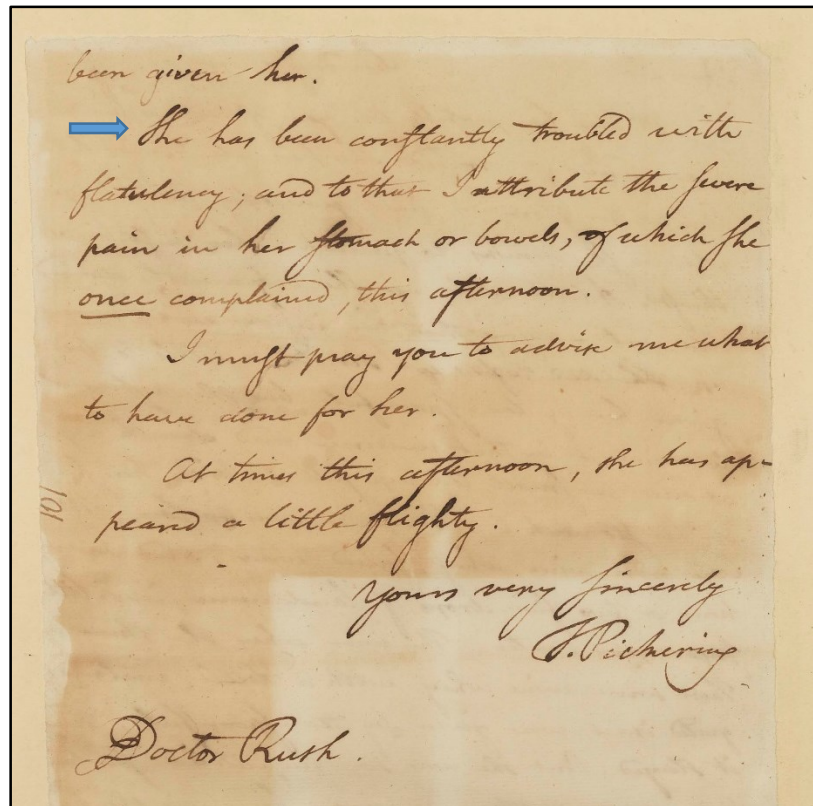 been given her.
She has been conſtantly troubled with
flatulency; and to that I attribute the ſevere
pain in her ſtomach or bowels, of which ſhe
once complained, this afternoon.
I muſt pray you to advise me what
to have done for her.
At times this afternoon, she has ap-
peared a little flighty.
Yours very ſincerely
T. Pickering
Doctor Rush.
101